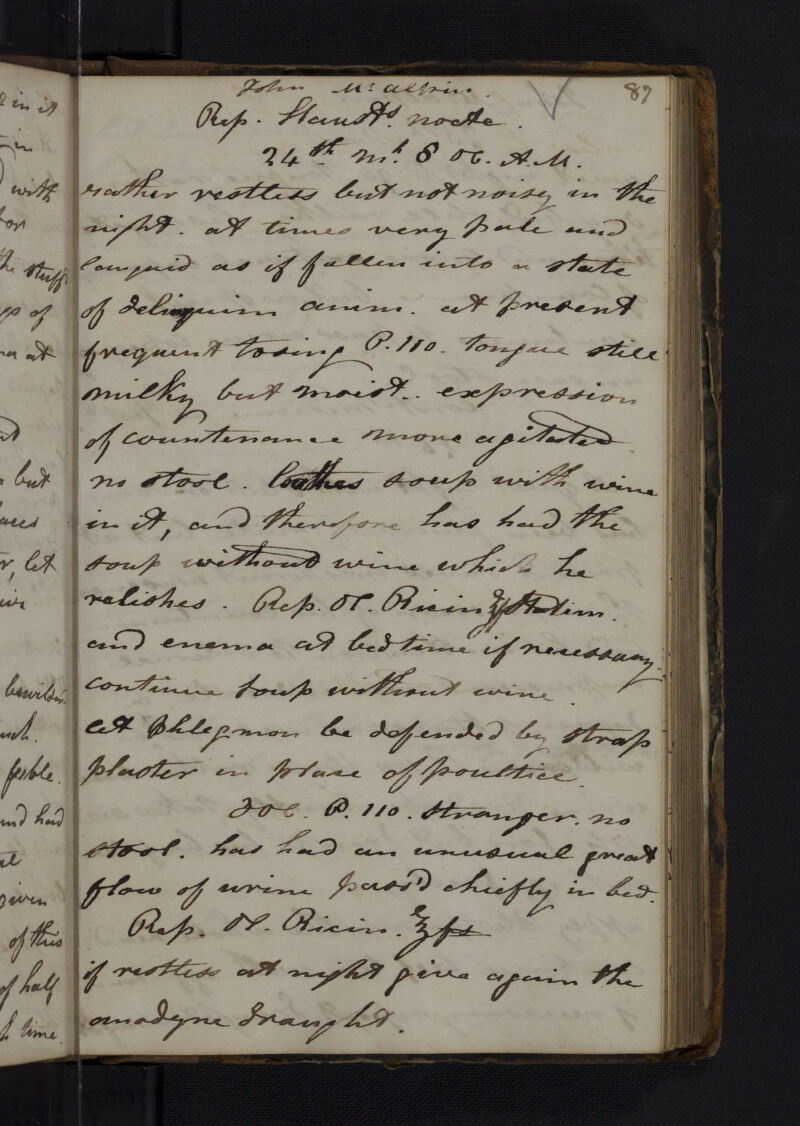 John McAlpin.
89
Rep. Haust.s nocte.
24th M. 8 oc. A.M.
rather restless but not noisy in the
night. at times very pale and
languid as if fallen into a state
of deliquium anim. at present
frequent tosing P.110. tongue still
milky but moist. expression
of countenance more agitated
no stool. loathes soup with wine
in it, and therefore has had the
soup without wine which he
relishes. Rep. Ol. Ricin ℥fs statim.
and enema at bedtime if necessary.
continue soup without wine.
let phlegmon be defended by strap
plaster in place of poultice.
3 oc. P. 110. stronger. no
stool. has had an unusual great
flow of urine pass'd chiefly in bed.
Rep. Ol. Ricin. ℥fs
if restless at night give again the
anodyne draught.
e in it
in
with
for
the stuff
of
at
but
r, let
bewilder
feeble.
and had
given
of this
of half
time.